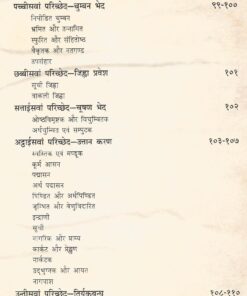 पच्चीसवां परिच्छेद—चुम्बन भेद ९९-१००
निपीडित चुम्बन
भ्रमित और उन्नामित
स्फुरित और संहितोष्ठ
वैकृतक और नतगण्ड
उपसंहार
छब्बीसवां परिच्छेद—जिह्वा प्रवेश १०१
सूची जिह्वा
वाकली जिह्वा
सत्ताईसवां परिच्छेद—चूषण भेद १०२
ओष्ठविमृष्टक और
अर्धचुम्बित एवं सम्पुटक
अट्ठाईसवां परिच्छेद—उत्तान करण १०३-१०७
स्वस्तिक एवं मण्डूक
कूर्म आसन
पद्मासन
अर्ध पद्मासन
पिण्डित और अर्धपिण्डित
जृम्भित और वेणुविदारित
इन्द्राणी
सूची
नागरिक और ग्राम्य
कार्कट और प्रेङ्खण
मार्कटक
उद्भुग्नक और आयत
नागपाश
उन्तीसवां परिच्छेद—तिर्यक्बन्ध १०८-११०